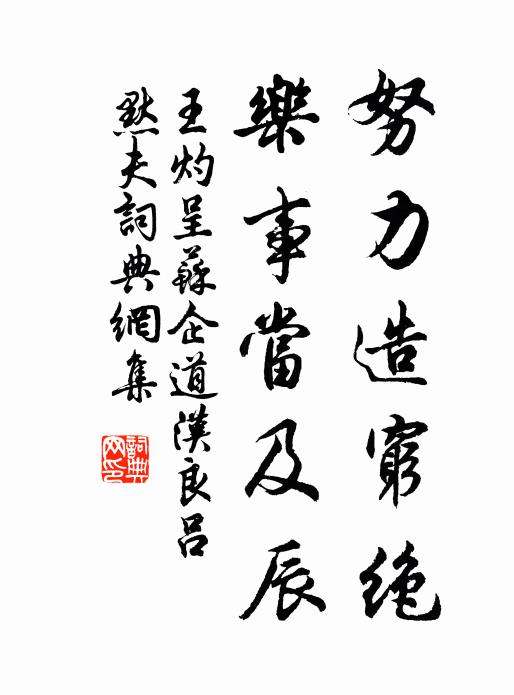 努力造窮絶
樂事當及辰
王灼呈蘇企道漢良呂
默夫詞典網集
詞典网印